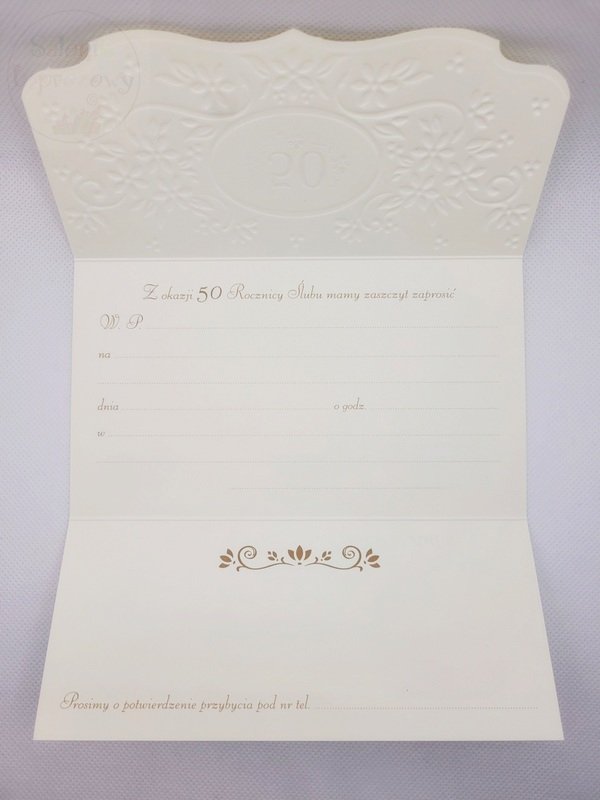 50
Z okazji 50 Rocznicy Ślubu mamy zaszczyt zaprosić
W. P.
na
dnia o godz.
w
Prosimy o potwierdzenie przybycia pod nr tel.